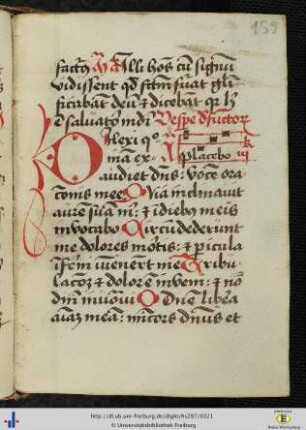 159
factus Mā Illi hoēs cū signū
vidissent qd̄ fecerat glī
ficabāt deū & dicebāt qr h̄
ē salvator mūdi Vespe defūctor
Dilexi qō
Placebo
mā ex
audiet dn̄s: vocē ora
tionis mee Quia inclinavit
aurē suā m̄: & ī diebus meis
invocabo Circūdederūt
me dolores mortis: & pericula
īferni invenerūt me Tribu
latōēz & dolorē inveni: & nō
dn̄i īvocavi O Dn̄e libera
aīaz meā: mīcors dn̄us et
http://dl.ub.uni-freiburg.de/diglit/hs287/0321
© Universitätsbibliothek Freiburg